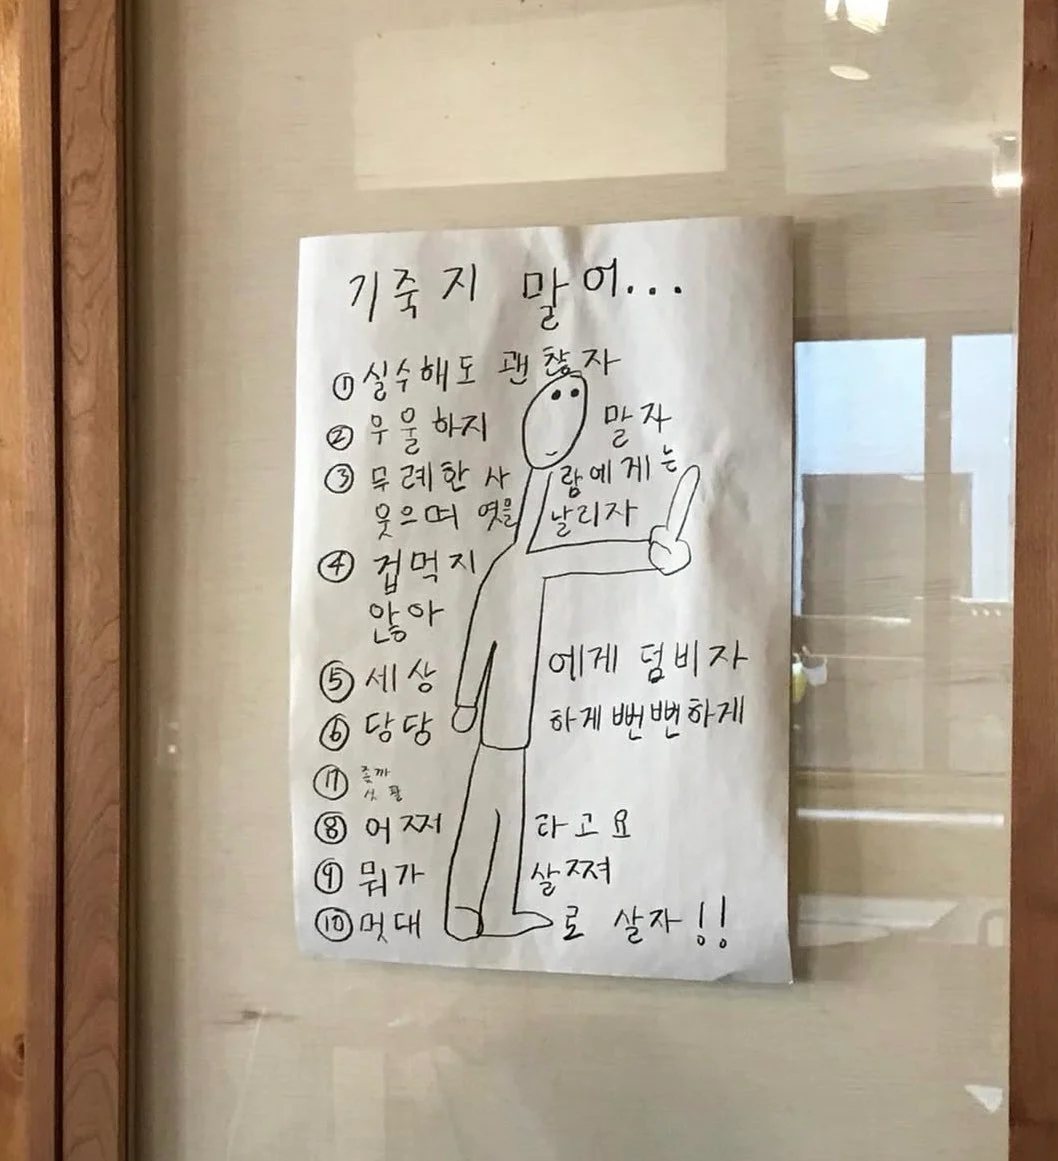 기죽지 말어...
① 실수해도 괜찮자
② 우울하지 말자
③ 무례한 사람에게는
웃으며 엿을 날리자
④ 겁먹지
않아
⑤ 세상에게 덤비자
⑥ 당당하게 뻔뻔하게
⑰ 좆까
싯팔
⑧ 어쩌라고요
⑨ 뭐가 살쪄
⑩ 멋대로 살자!!